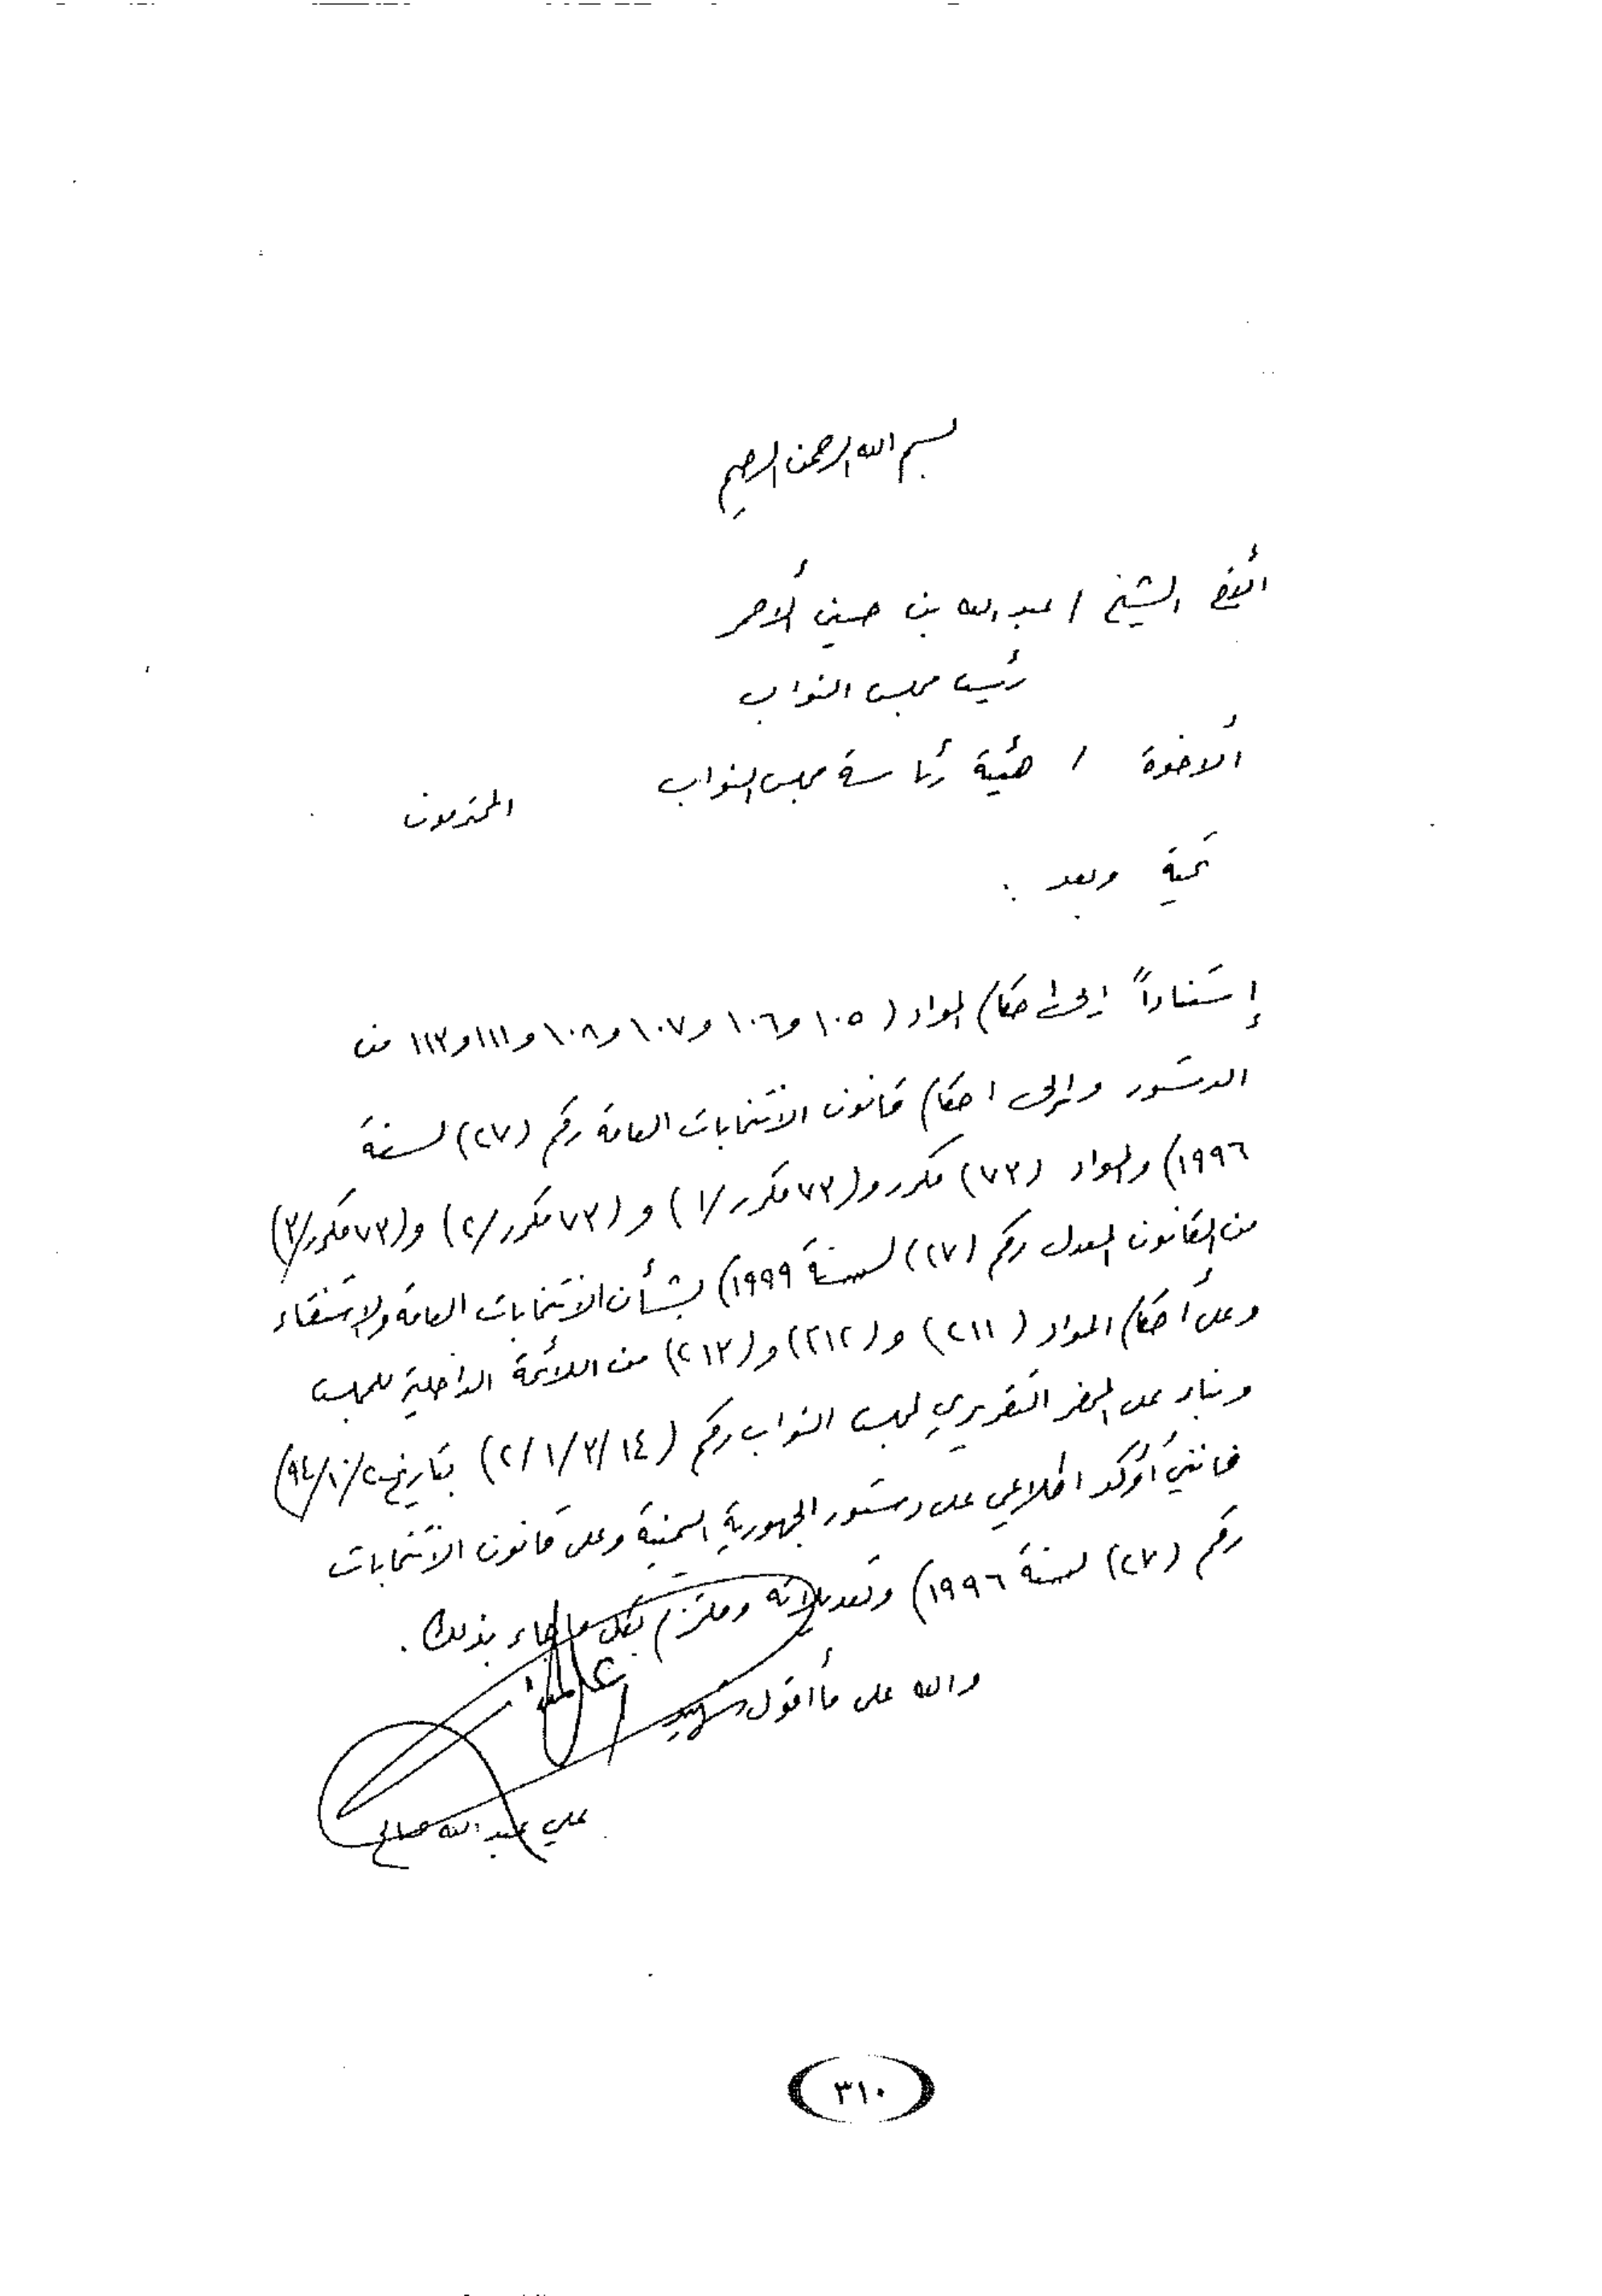 بسم الله الرحمن الرحيم
الأخ الشيخ / عبد الله بن حسين الأحمر
رئيس مجلس النواب
الأخوة / هيئة رئاسة مجلس النواب
المحترمون
تحية وبعد :
إستناداً إلى احكام المواد (١٠٥ و١٠٦ و١٠٧ و١٠٨ و١١١ و١١٣ من
الدستور وإلى احكام قانون الانتخابات العامة رقم (٢٧) لسنة
١٩٩٦) والمواد (٧٣) مكرر و(٧٣ مكرر/١) و (٧٣ مكرر/٢) و(٧٣ مكرر/٣)
من القانون المعدل رقم (٢٧) لسنة ١٩٩٩) بشأن الانتخابات العامة والاستفتاء
وعلى أحكام المواد (٢١١) و(٢١٢) و(٢١٣) من اللائحة الداخلية للمجلس
وبناء على المحضر التقريري لمجلس النواب رقم (١٤/٣/١/٢) بتاريخ
فانني أؤكد اطلاعي على دستور الجمهورية اليمنية وعلى قانون الانتخابات
رقم (٢٧) لسنة ١٩٩٦) وتعديلاته وملتزم بكل ما جاء بذلك .
والله على ما أقول شهيد
علي عبد الله صالح
٣١٠